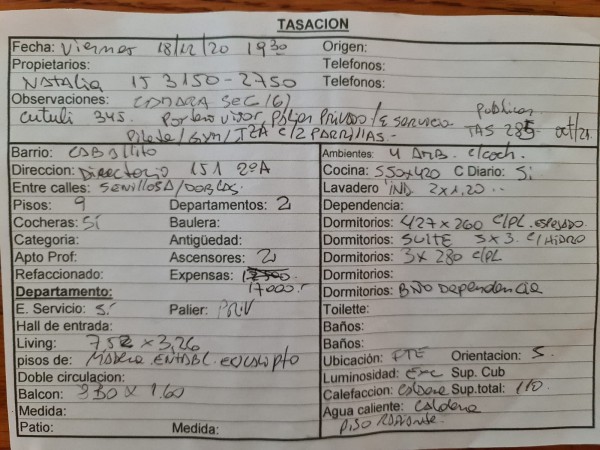 TASACION
Fecha: Viernes 18/12/20 1930 Origen:
Propietarios: Telefonos:
Natalia 15 3150-2750 Telefonos:
Observaciones: Camara sec (6) publicar
345. Portero visor, Palier Privado/E servicio TAS 285 oct/21
Pileta/Gym/TZA c/2 PARRILLAS.
Barrio: Caballito
Direccion: Directorio 151 2ºA
Entre calles: Senillosa/Doblas
Pisos: 9 Departamentos: 2
Cocheras: Sí Baulera:
Categoria: Antigüedad:
Apto Prof: Ascensores: 2
Refaccionado: Expensas: 17500
Departamento: 17000.
E. Servicio: Sí Palier: Priv
Hall de entrada:
Living: 752 x 3,26
pisos de: Madera entabl. eucalipto
Doble circulacion:
Balcon: 330 x 1.60
Medida:
Patio: Medida:
Ambientes: 4 AMB. c/coch.
Cocina: 550x420 C Diario: Sí
Lavadero IND 2x1,20
Dependencia:
Dormitorios: 427x260 c/PL. espejado
Dormitorios: SUITE 5x3. c/Hidro
Dormitorios: 3x280 c/PL
Dormitorios:
Dormitorios: Bño Dependencia
Toilette:
Baños:
Baños:
Ubicación: FTE Orientacion: S.
Luminosidad: Exc Sup. Cub
Calefaccion: Caldera Sup.total: 110
Agua caliente: Caldera
Piso Radiante.